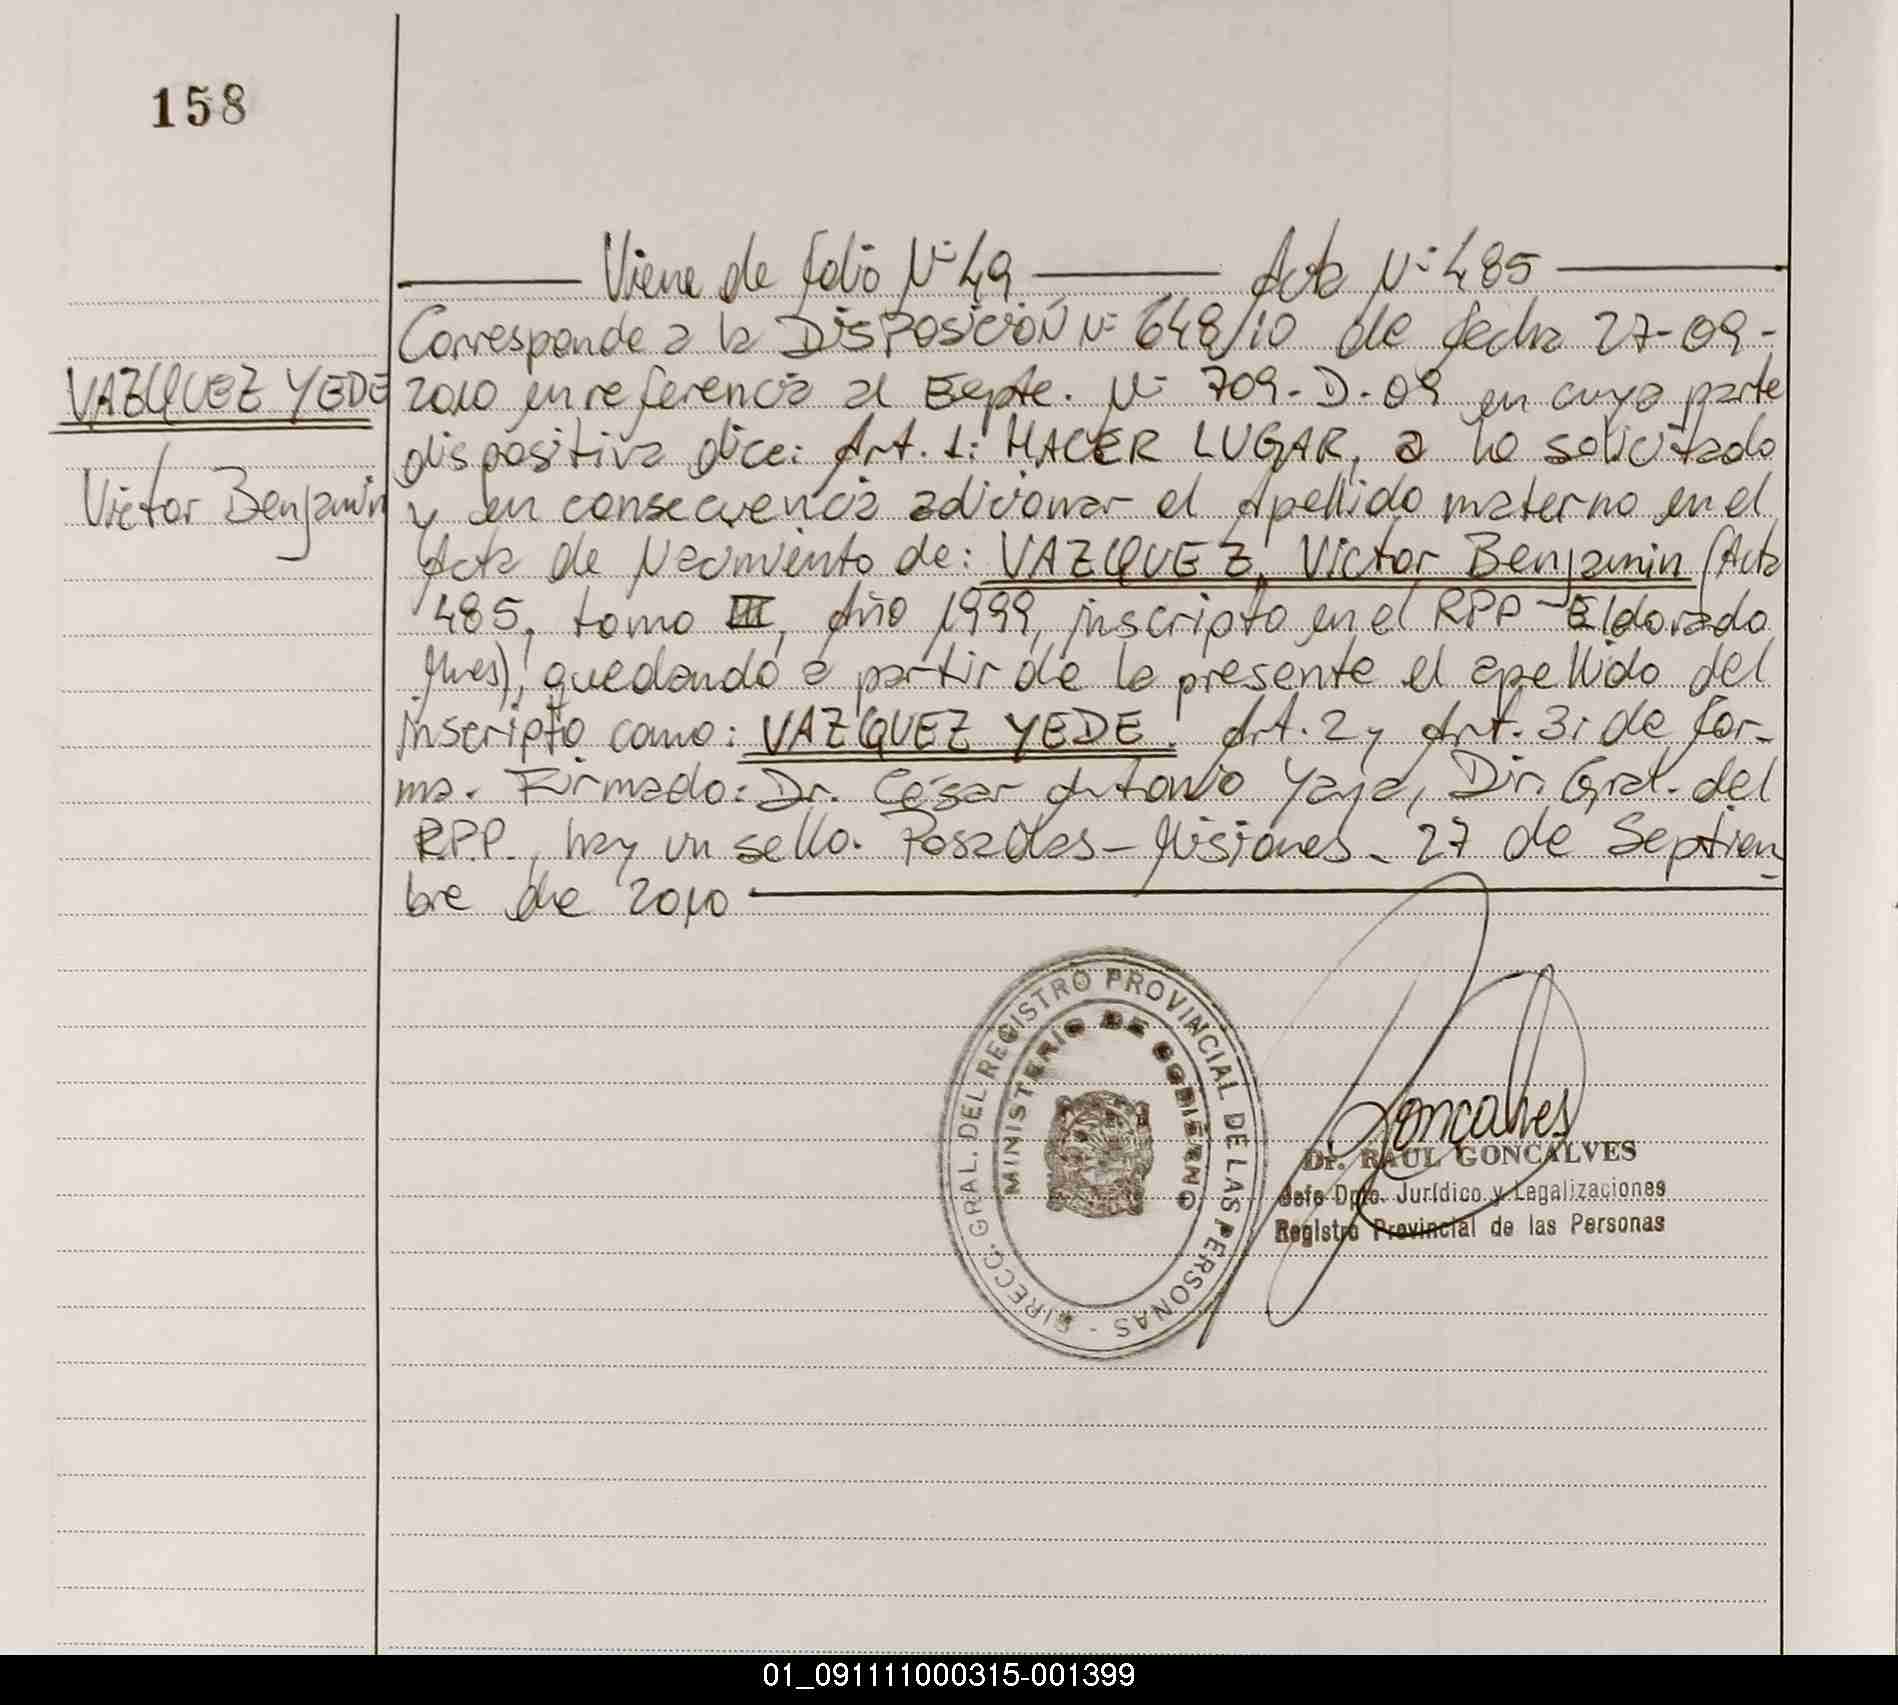 158
Viene de folio Nº 49 Acta Nº 485
Corresponde a la DISPOSICIÓN Nº 648/10 de fecha 27-09-
VAZQUEZ YEDE
2010 en referencia al Expte. Nº 709-D-09 en cuya parte
dispositiva dice: Art. 1: HACER LUGAR, a lo solicitado
Victor Benjamin
y en consecuencia adicionar el Apellido materno en el
Acta de Nacimiento de: VAZQUEZ, Victor Benjamin (Acta
485, tomo III, Año 1999, inscripto en el RPP-Eldorado
Mnes), quedando a partir de la presente el apellido del
inscripto como: VAZQUEZ YEDE. Art. 2 y Art. 3: de for-
ma. Firmado: Dr. César Antonio Yaya, Dir. Gral. del
R.P.P., hay un sello. Posadas-Misiones. 27 de Septiem-
bre de 2010
DIRECC. GRAL. DEL REGISTRO PROVINCIAL DE LAS PERSONAS -
MINISTERIO DE GOBIERNO
Goncalves
Dr. RAUL GONCALVES
Jefe Dpto. Jurídico y Legalizaciones
Registro Provincial de las Personas
01_091111000315-001399